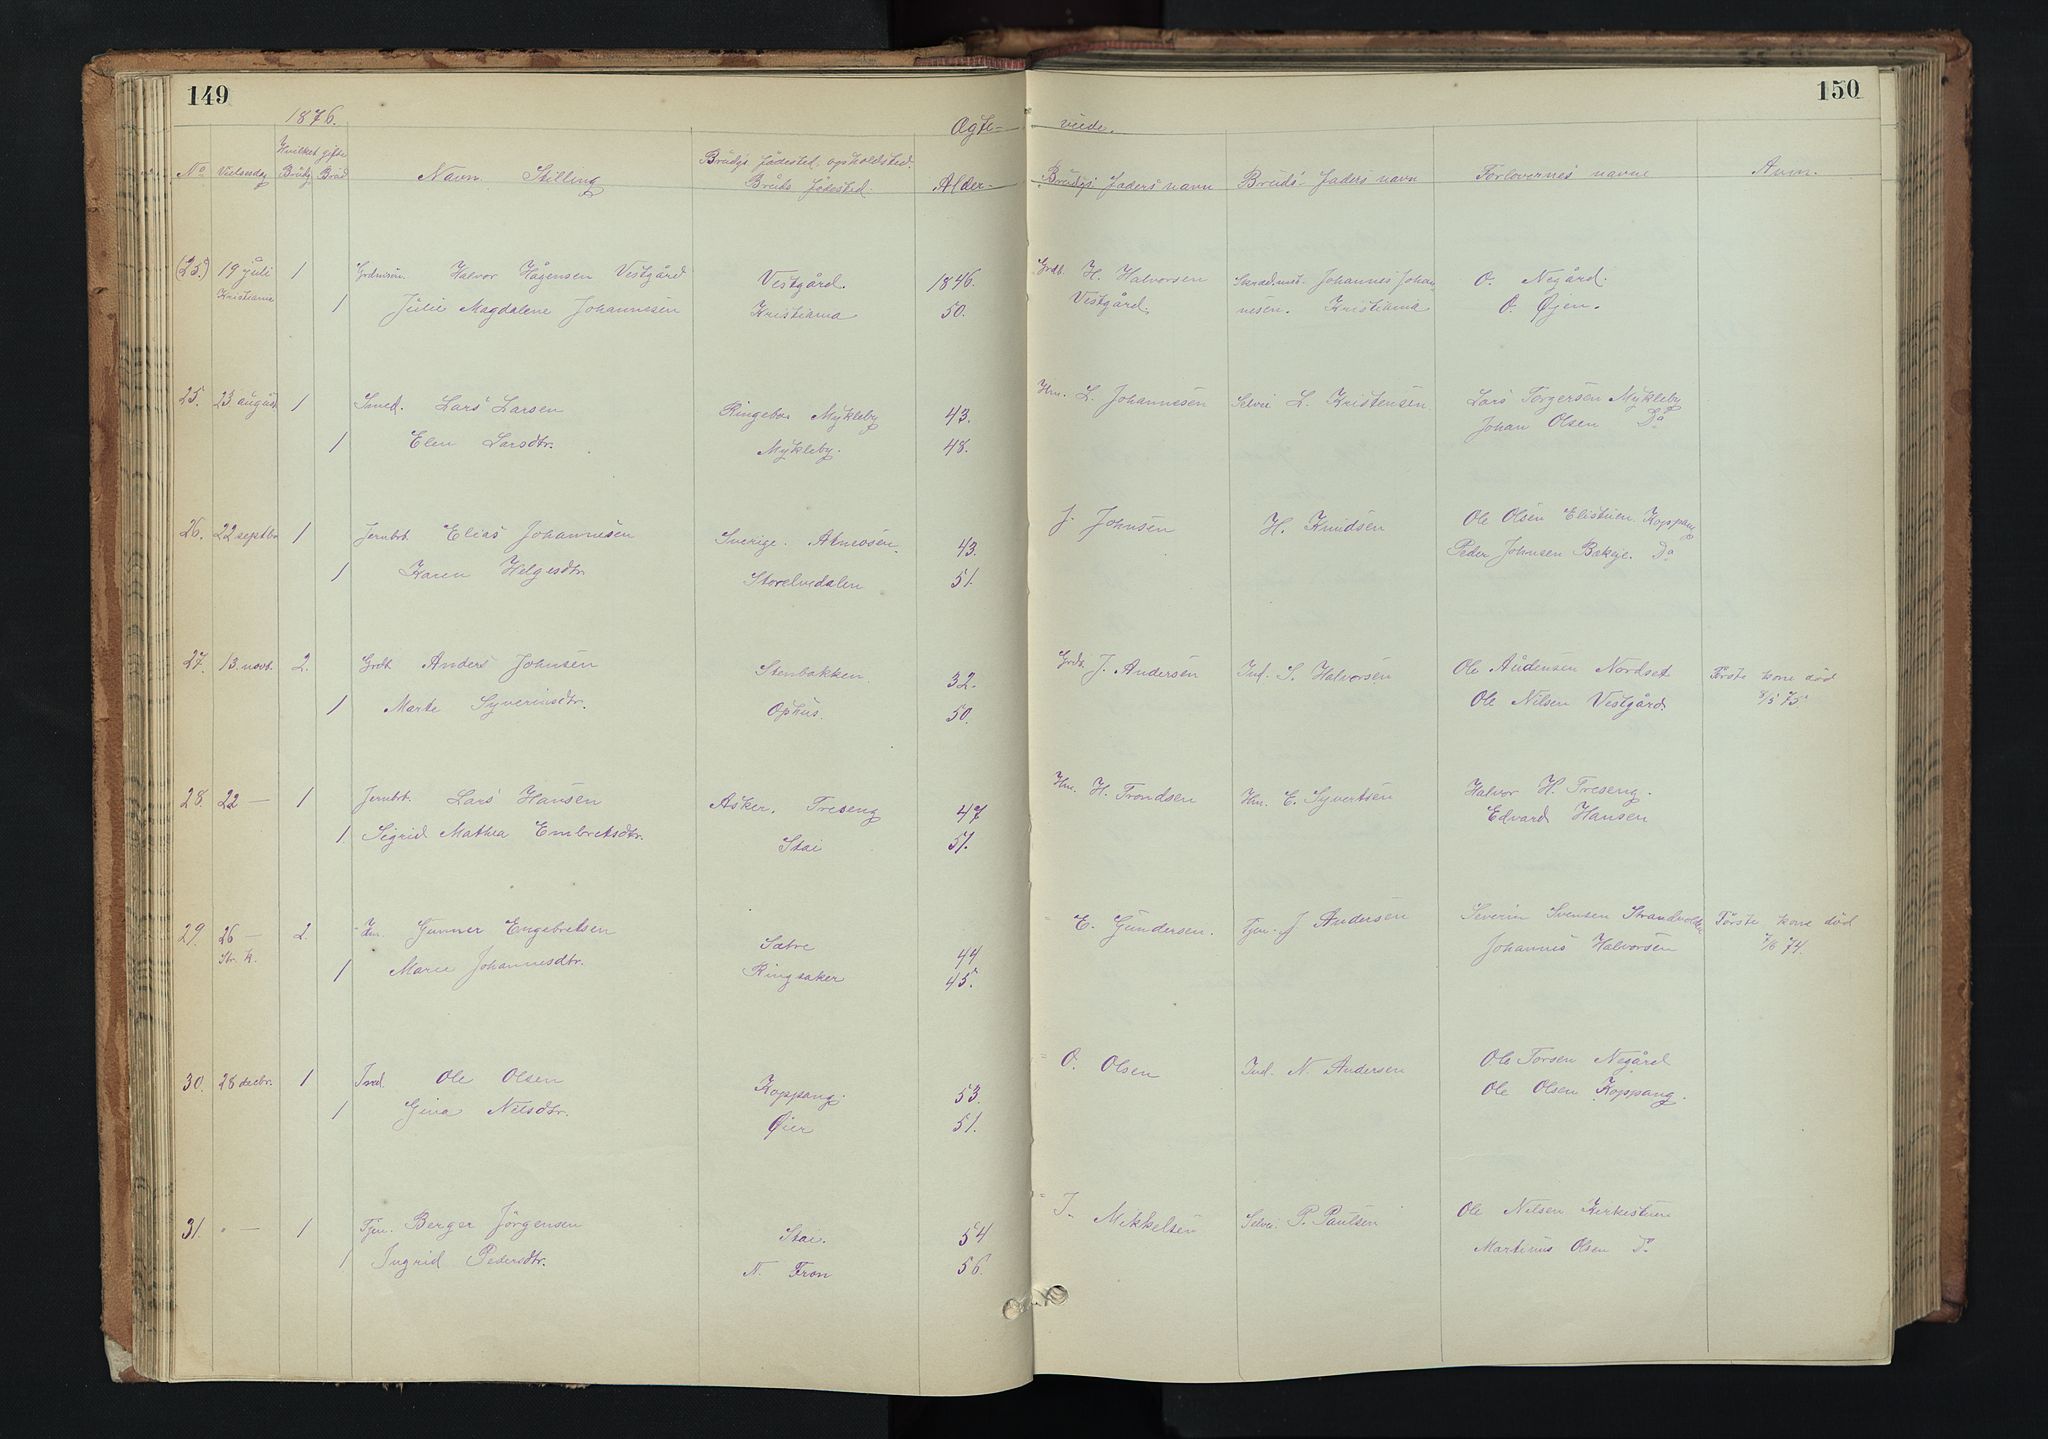 149
150
1876.
Ægte-
viede.
No
Vielsesdag
Hvilket gifte
Brudg. Brud
Navn. Stilling
Brudgs fødested, opholdsted.
Bruds fødested.
Alder.
Brudgs Faders navn
Bruds Faders navn
Forlovernes navne
Anm.
(25.) 19 juli 1 Grdmsøn. Halvor Hågensen Vestgård Vestgård. 1846. Grdb. H. Halvorsen Skrædmst. Johannes Johan- O. Negård.
Kristiania 1 Julie Magdalene Johannesen Kristiania 50. Vestgård nesen. Kristiania O. Øjen.
25. 23 august 1 Smed. Lars Larsen Ringebu Mykleby 43. Hm. L. Johannesen Selvei L. Kristensen Lars Torgersen Mykleby
1 Elen Larsdtr. Mykleby. 48. Johan Olsen Do
26. 22 septbr 1 Jernbt. Elias Johannesen Sverige. Atneosen. 43. J. Johnsen H. Knudsen Ole Olsen Elistuen. Koppang
1 Karen Helgesdtr. Storelvedalen 51. Peder Johnsen Do
27. 13. novb. 2. Grdb. Anders Johnsen Stenbakken. 32. Grdb. J. Andersen Ind. S. Halvorsen Ole Audensen Nordset Første kone død
1 Marte Syverinsdtr. Ophus. 50. Ole Nilsen Vestgård. 8/5 75.
28. 22 — 1 Jernbt. Lars Hansen Asker. Treseng 47 Hm. H. Trondsen Hm. E. Syvertsen Halvor H. Treseng.
1 Sigrid Mathea Embretsdtr. Stai 51. Edvard Hansen
29. 26 — 2. Hm. Gunner Engebretsen Sætre 44 E. Gundersen. Tjen. J Andersen Severin Svensen Strandvolden Første kone død
Str. k. 1 Marie Johannesdtr. Ringsaker 45. Johannes Halvorsen 7/6 74.
30. 28 decbr. 1 Ind. Ole Olsen Koppang. 53. O. Olsen Ind. N. Andersen Ole Torsen Negård
1 Gina Nilsdtr. Øier 51. Ole Olsen Koppang.
31. " — 1 Tjen. Berger Jörgensen Stai. 54 J. Mikkelsen Selvei. P. Paulsen Ole Nilsen Kirkestuen
1 Ingrid Pedersdtr. N. Fron 56. Martinus Olsen Do